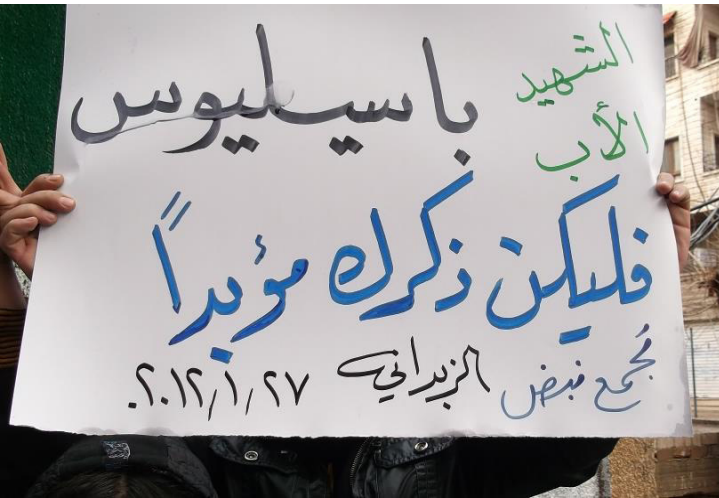 الشهيد
الأب باسيليوس
فليكن ذكرك مؤبداً
تجمع نبض الزبداني ٢٠١٢/١/٢٧